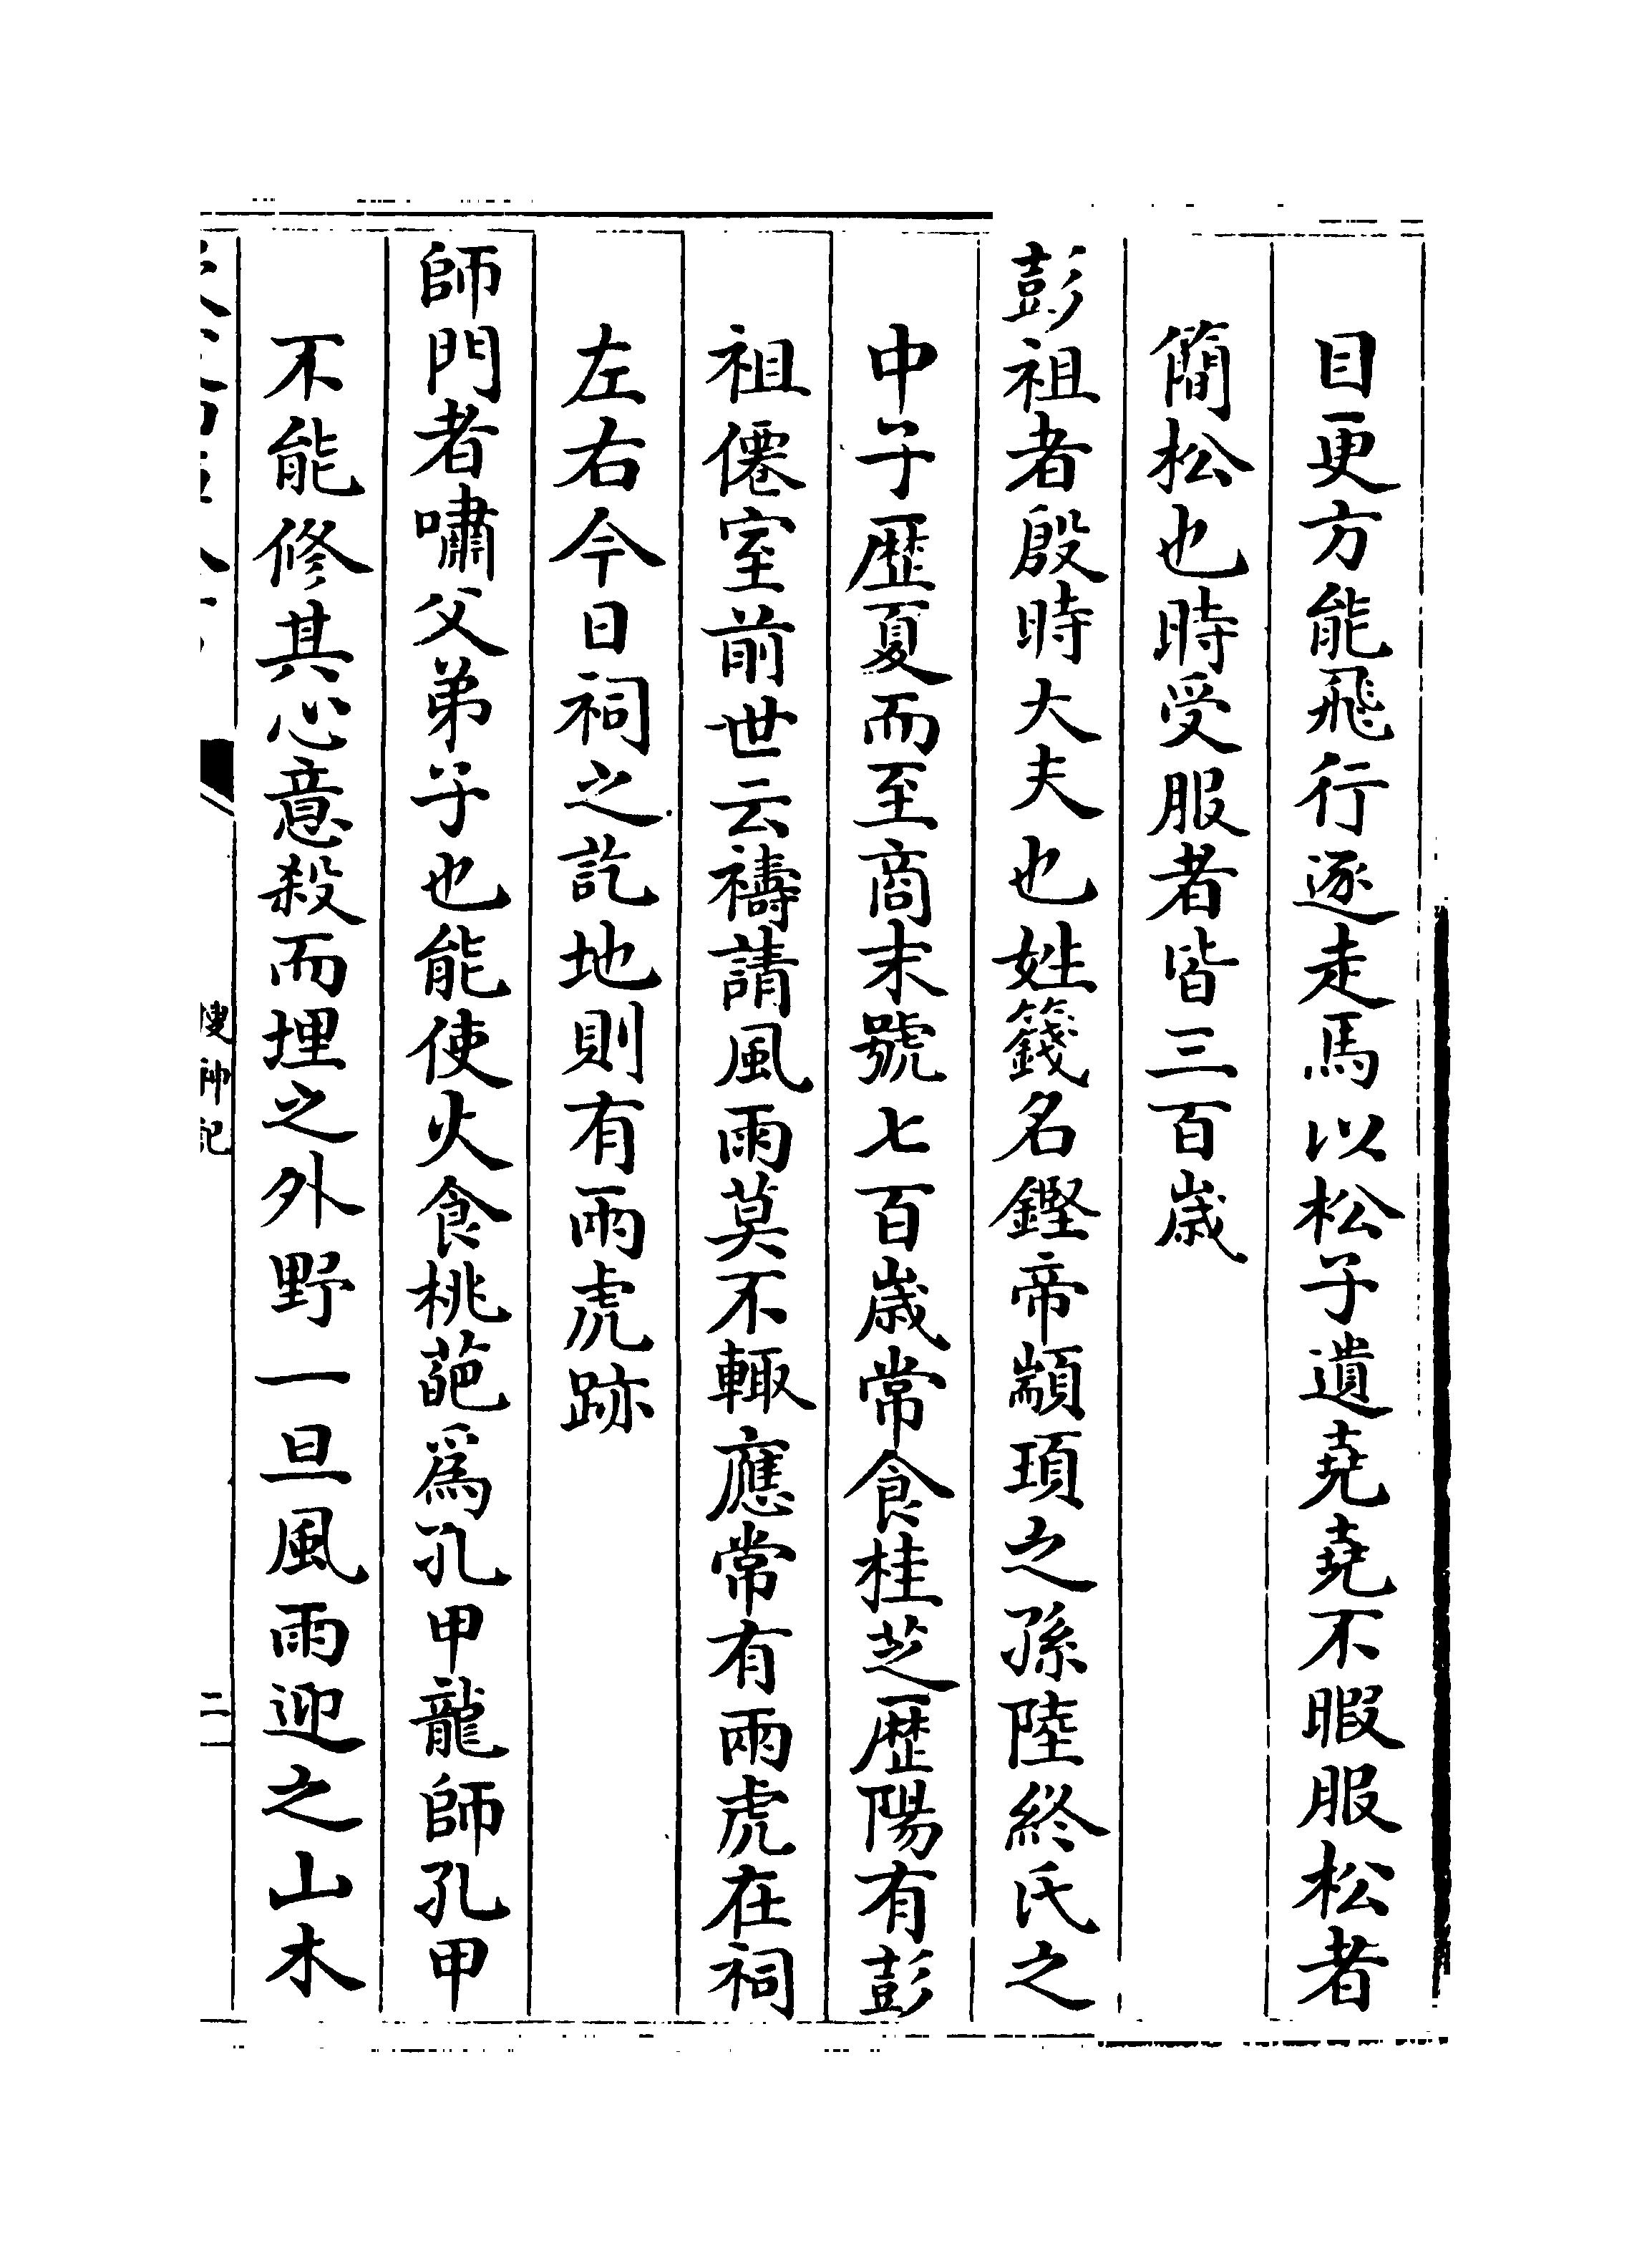 目更方能飛行逐走馬以松子遺堯堯不暇服松者
簡松也時受服者皆三百歲
彭祖者殷時大夫也姓籛名鏗帝顓頊之孫陸終氏之
中子歷夏而至商末號七百歲常食桂芝歷陽有彭
祖僊室前世云禱請風雨莫不輙應常有兩虎在祠
左右今日祠之訖地則有兩虎跡
師門者嘯父弟子也能使火食桃葩爲孔甲龍師孔甲
不能修其心意殺而埋之外野一旦風雨迎之山木
搜神記
二